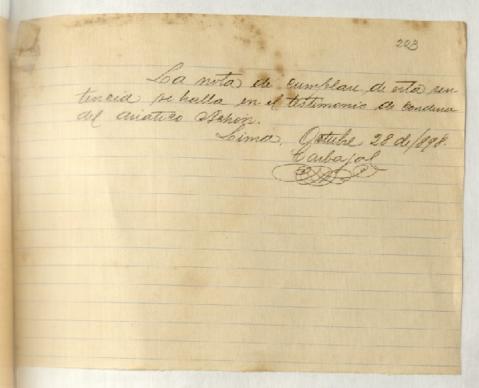 203
La nota de cumplase de esta sen
tencia se halla en el testimonio de condena
del asiático Achon.
Lima, Octubre 28 de/898.
Carbajal